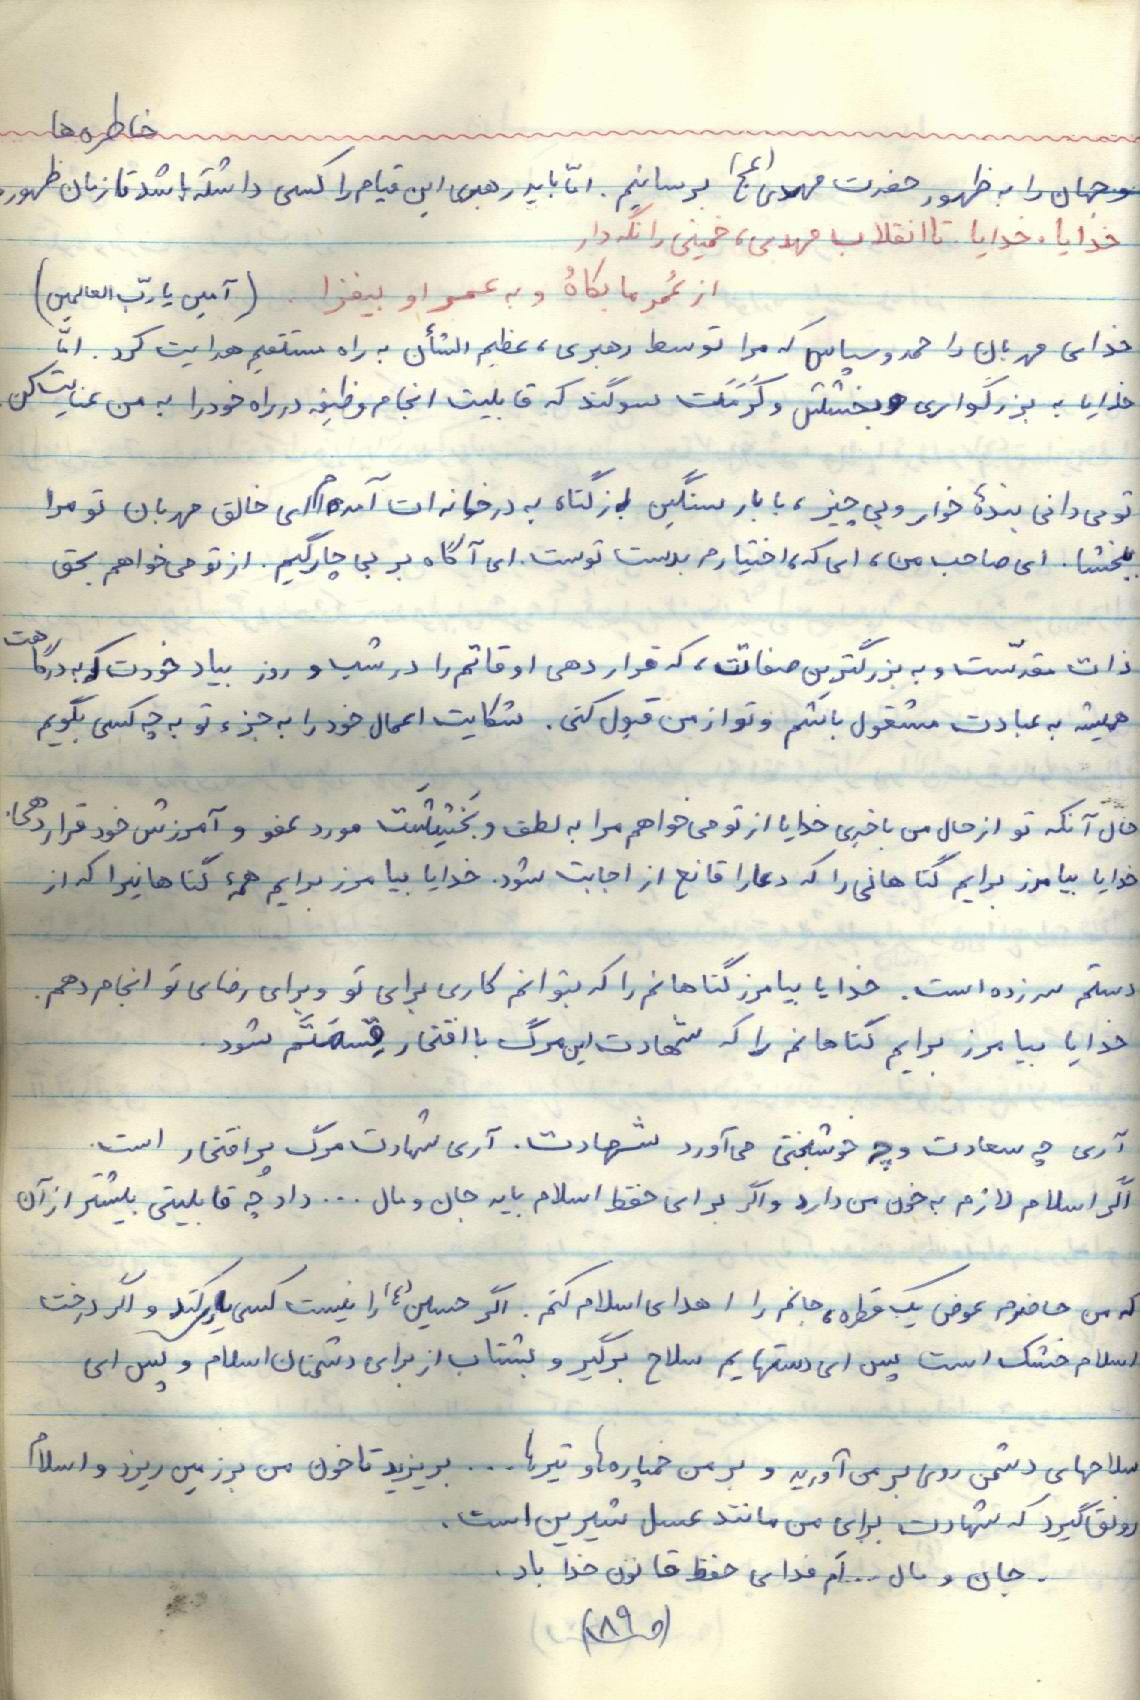 خاطره ها
وجهان را به ظهور حضرت مهدی (عج) برسانیم. امّا باید رهبری این قیام را کسی داشته باشد تا زمان ظهور
خدایا، خدایا. تا انقلاب مهدی، خمینی را نگه دار
از عُمر ما بکاهُ و به عمر او بیفزا. (آمین یا ربّ العالمین)
خدای مهربان را حمد و سپاس که مرا توسط رهبری، عظیم الشأن به راه مستقیم هدایت کرد. امّا
خدایا به بزرگواری و بخشش و کَرَمَت سوگند که قابلیت انجام وظیفه در راه خود را به من عنایت کن.
تو می دانی بندهٔ خوار و بی چیز، با بار سنگین از گناه به در خانه ات آمده ام ای خالق مهربان تو مرا
ببخشا. ای صاحب من، ای که، اختیارم بدست توست. ای آگاه بر بی چارگیم. از تو می خواهم بحق
ذات مقدّست و به بزرگترین صفاتت، که قرار دهی اوقاتم را در شب و روز بیاد خودت که به درگاهت
همیشه به عبادت مشقول باشم و تو از من قبول کنی. شکایت اعمال خود را به جزء تو به چه کسی بگویم
حال آنکه تو از حال من باخبری خدایا از تو می خواهم مرا به لطف و بَخشِشَت مورد عفو و آمرزش خود قرار دهی.
خدایا بیامرز برایم گناهانی را که دعا را قانع از اجابت شود. خدایا بیامرز برایم همهٔ گناهانیرا که از
دستم سر زده است. خدایا بیامرز گناهانم را که بتوانم کاری برای تو و برای رضای تو انجام دهم.
خدایا بیامرز برایم گناهانم را که شهادت این مرگ با افتخار قِسمَتَم شود.
آری چه سعادت و چه خوشبختی می آورد شهادت. آری شهادت مرگ پر افتخار است.
اگر اسلام لازم به خون من دارد و اگر برای حفظ اسلام باید جان و مال ... داد چُه قابلیتی بیشتر از آن
که من حاضرم عوض یک قطره، جانم را اهدای اسلام کنم. اگر حسین (ع) را نیست کسی یاری کند و اگر درخت
اسلام خشک است پس ای دستهایم سلاح برگیر و بشتاب از برای دشمنان اسلام و پس ای
سلاحهای دشمن روی بر من آورید و بر من خمپاره ها و تیرها ... بریزید تا خون من بر زمین ریزد و اسلام
رونق گیرد که شهادت برای من مانند عسل شیرین است.
. جان و مال ... ام فدای حفظ قانون خدا باد.
(ص ۱۸۹)